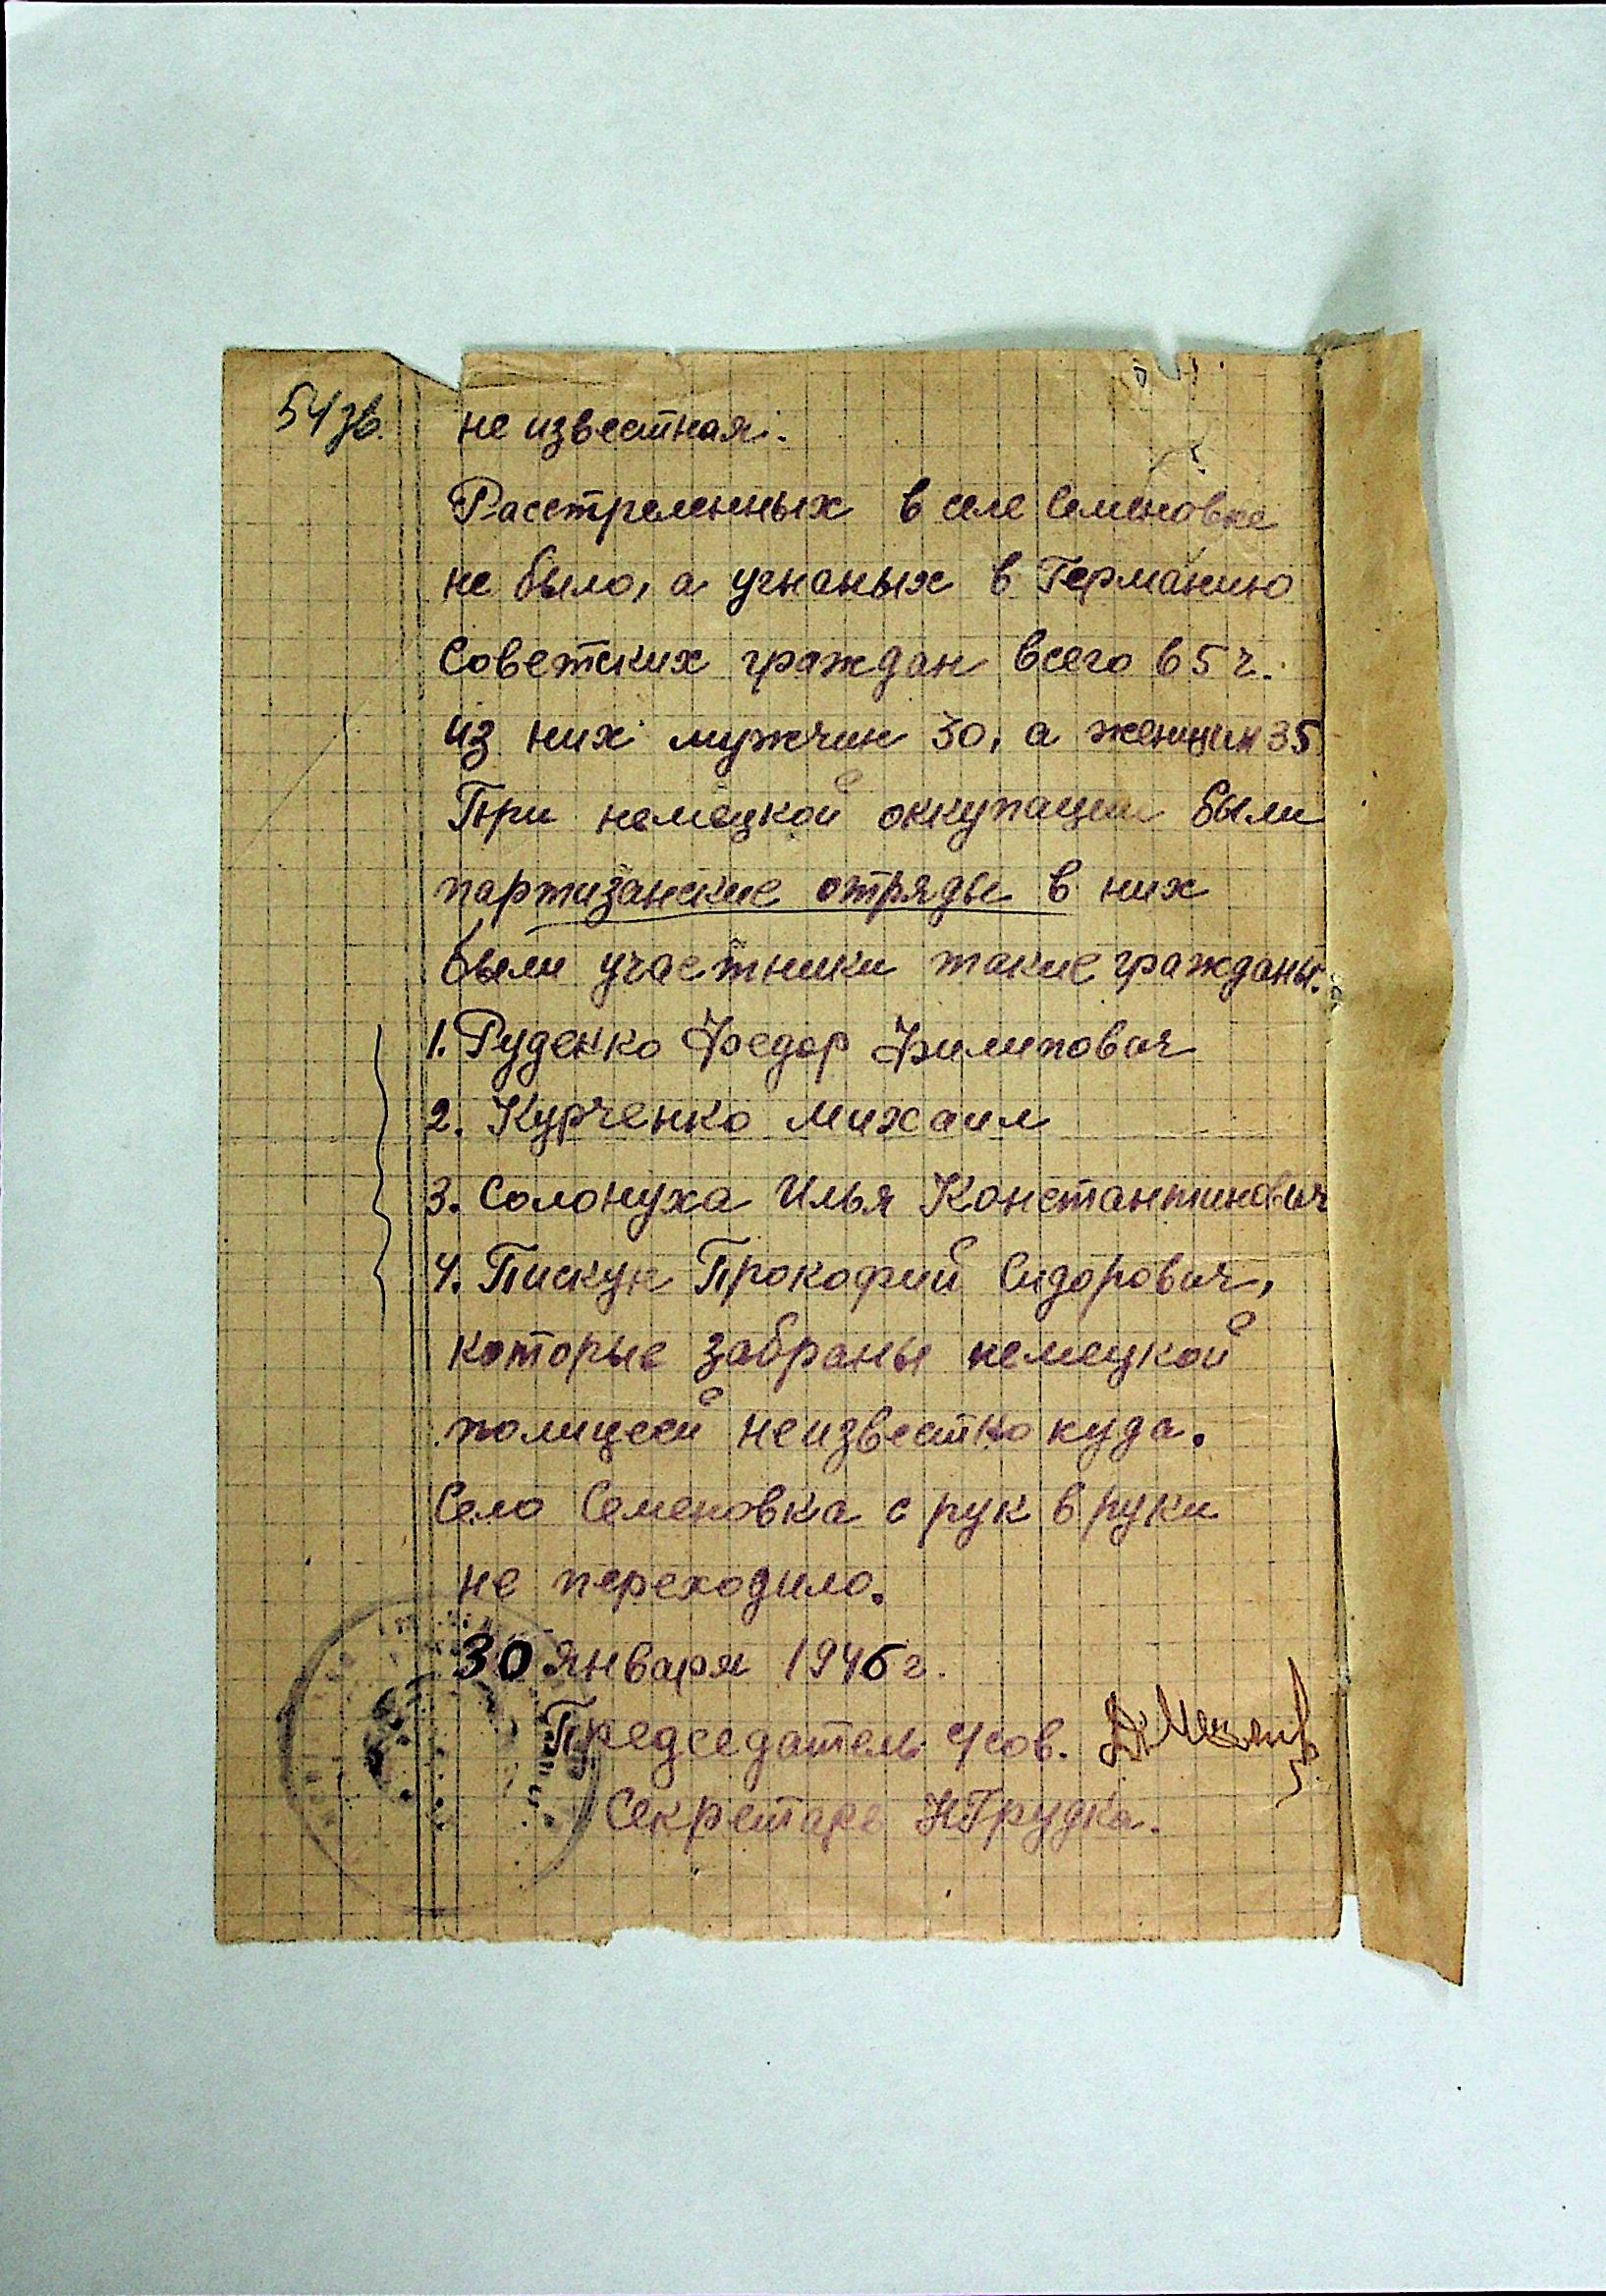 54 зв.
не известная.
Расстреленных в селе Семеновке
не было, а угнаных в Германию
Советских граждан всего 65 ч.
из них мужчин 30, а женщин 35
При немецкой оккупации были
партизанские отряды в них
были участники такие гражданы.
1. Руденко Федор Филипович
2. Курченко Михаил
3. Солонуха Илья Константинович
4. Пискун Прокофий Сидорович,
которые забраны немецкой
полицеей неизвестно куда.
Село Семеновка с рук в руки
не переходило.
30 января 1946 г.
Председатель с/сов.
Секретарь НГрудка.